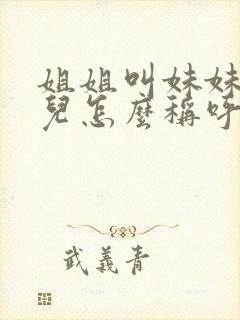 姐姐叫妹妹
兒怎麼稱呼
武義青